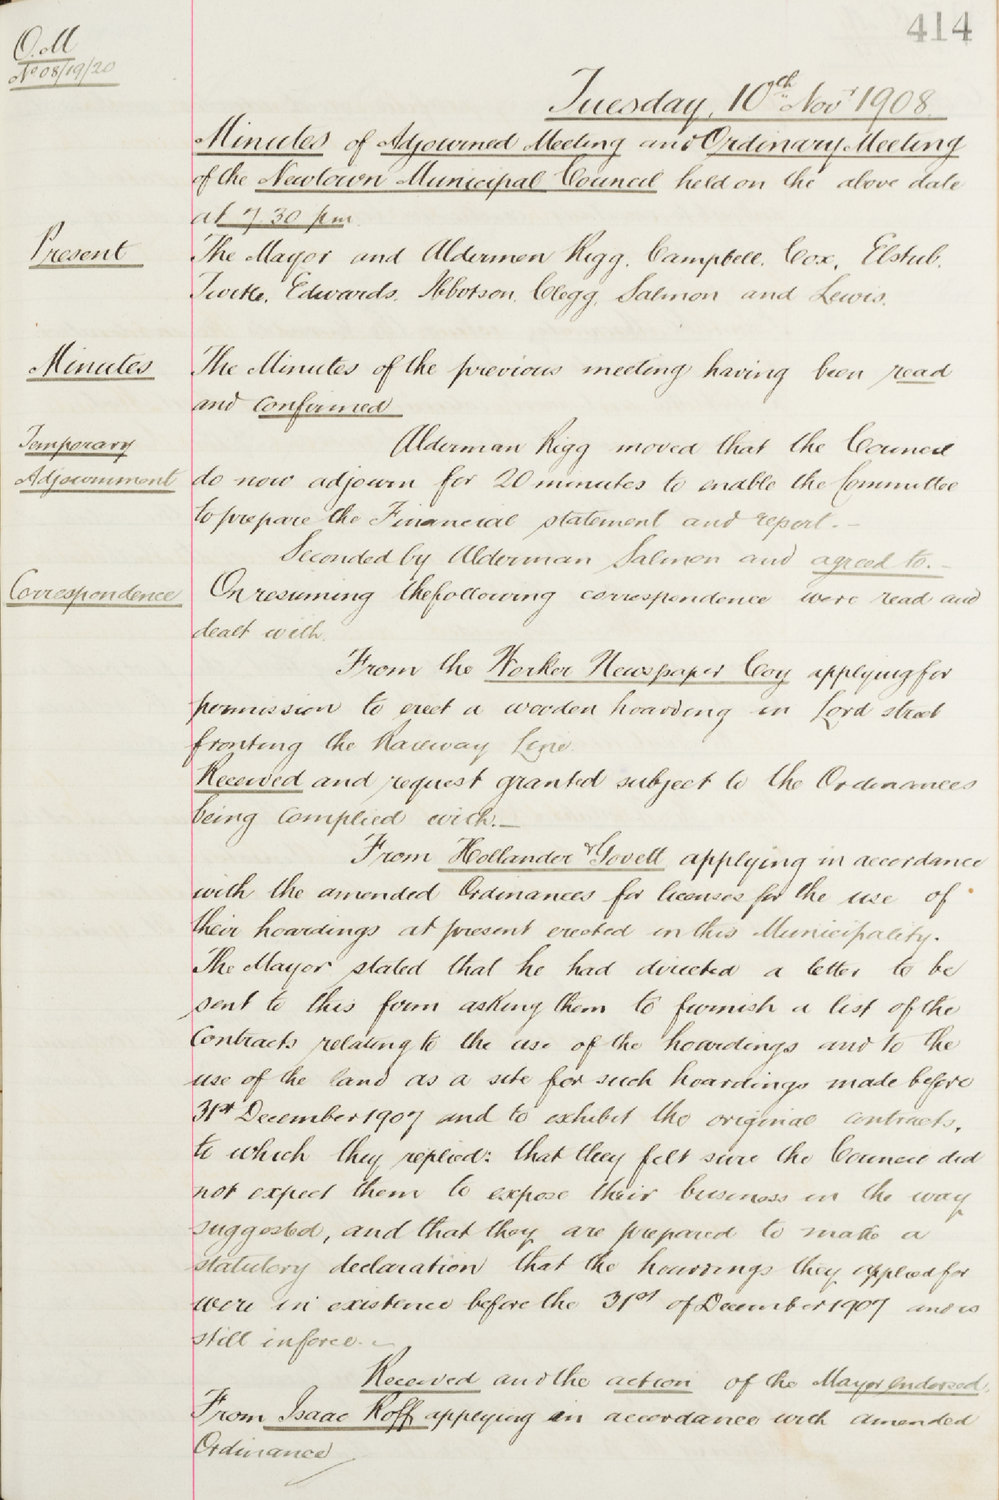 414
O.M
No 08/19/20
Tuesday, 10th Novr 1908
Minutes of Adjourned Meeting and Ordinary Meeting
of the Newtown Municipal Council held on the above date
at 7.30 pm
Present
The Mayor and Aldermen Rigg. Campbell. Cox. Elstub.
Turtle. Edwards. Abbotson. Clegg. Salmon and Lewis.
Minutes
The Minutes of the previous meeting having been read
and confirmed
Temporary
Adjournment
Alderman Rigg moved that the Council
do now adjourn for 20 minutes to enable the Committee
to prepare the Financial statement and report. –
Seconded by Alderman Salmon and agreed to. –
Correspondence
On resuming the following correspondence were read and
dealt with.
From the Worker Newspaper Coy applying for
permission to erect a wooden hoarding in Lord street
fronting the Railway Line.
Received and request granted subject to the Ordinances
being complied with. –
From Hollander & Govett applying in accordance
with the amended Ordinances for licenses for the use of
their hoardings at present erected in this Municipality.
The Mayor stated that he had directed a letter to be
sent to this firm asking them to furnish a list of the
Contracts relating to the use of the hoardings and to the
use of the land as a site for such hoardings made before
31st December 1907 and to exhibit the original contracts,
to which they replied: that they felt sure the Council did
not expect them to expose their business in the way
suggested, and that they are prepared to make a
statutory declaration that the hoardings they applied for
were in existence before the 31st of December 1907 and is
still inforce. –
Received and the action of the Mayor endorsed.
From Isaac Roff applying in accordance with amended
Ordinance